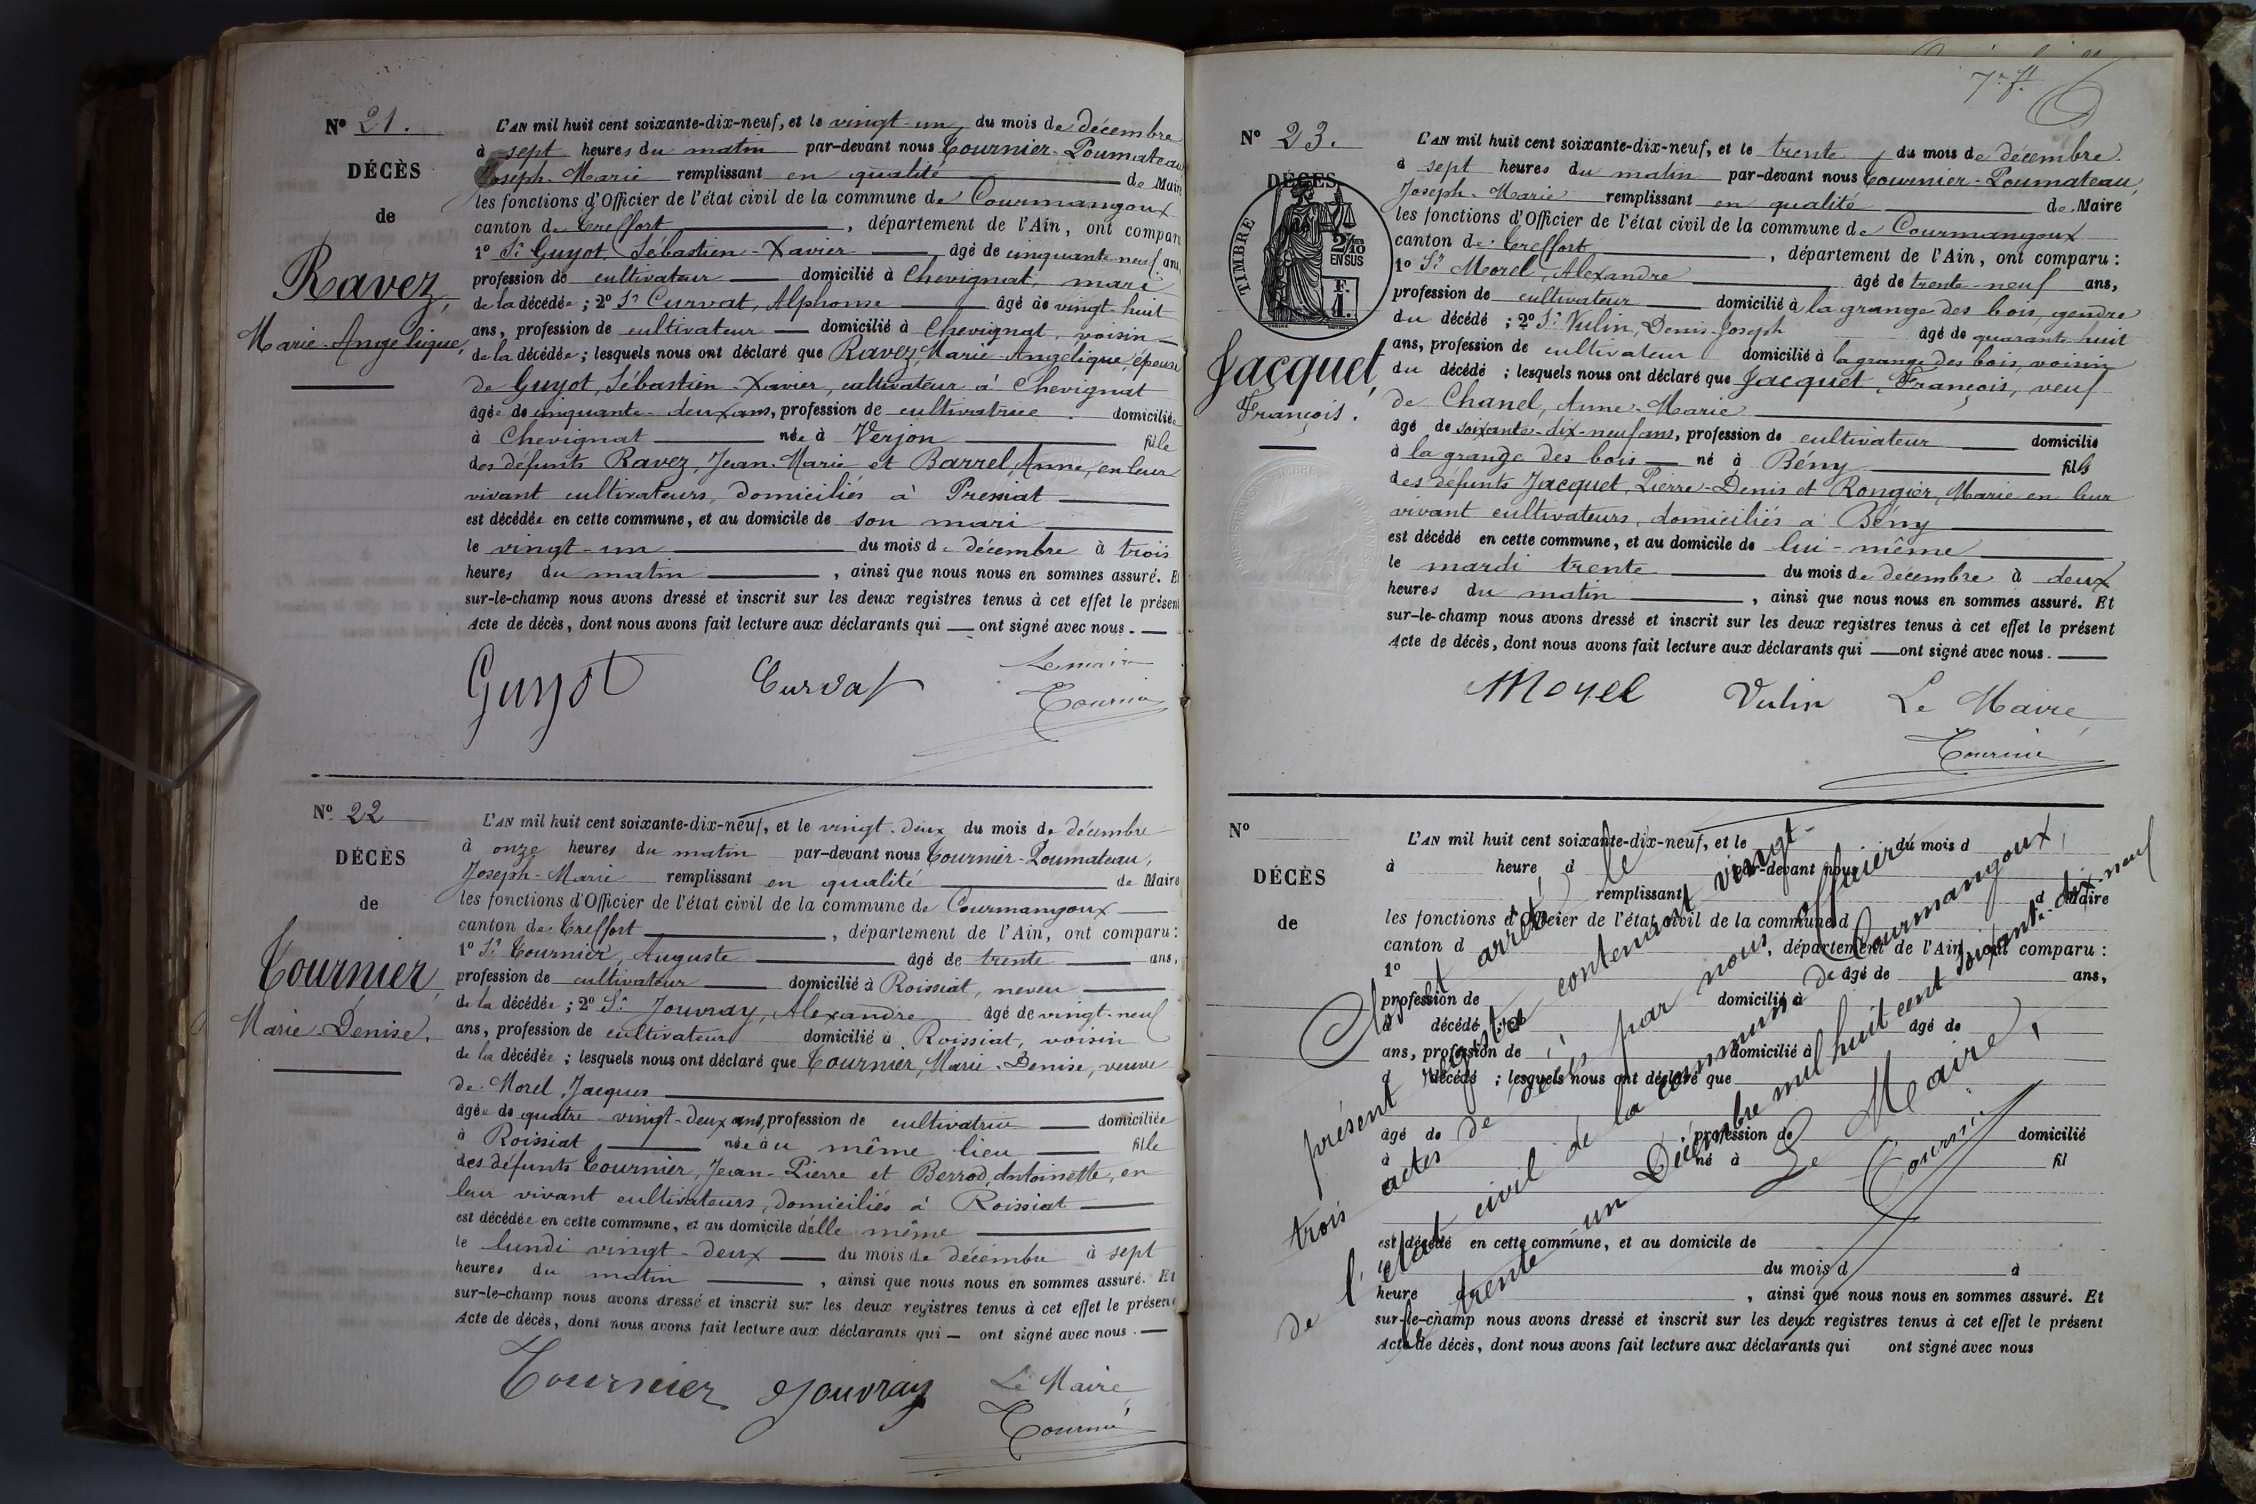 N° 21.
DÉCÈS
de
Ravez,
Marie-Angélique,
L'AN mil huit cent soixante-dix-neuf, et le vingt-un du mois de décembre
à sept heures du matin par-devant nous Tournier-Poumateau
Joseph-Marie remplissant en qualité de Maire
les fonctions d'Officier de l'état civil de la commune de Courmangoux
canton de Treffort, département de l'Ain, ont comparu
1° Sr Guyot, Sébastien-Xavier âgé de cinquante-neuf ans,
profession de cultivateur domicilié à Chevignat, mari
de la décédée; 2° Sr Curvat, Alphonse âgé de vingt-huit
ans, profession de cultivateur domicilié à Chevignat, voisin
de la décédée; lesquels nous ont déclaré que Ravez, Marie-Angélique, épouse
de Guyot, Sébastien-Xavier, cultivateur à Chevignat
âgée de cinquante-deux ans, profession de cultivatrice domiciliée
à Chevignat née à Verjon fille
des défunts Ravez, Jean-Marie et Barrel, Anne, en leur
vivant cultivateurs, domiciliés à Pressiat
est décédée en cette commune, et au domicile de son mari
le vingt-un du mois de décembre à trois
heures du matin, ainsi que nous nous en sommes assuré. Et
sur-le-champ nous avons dressé et inscrit sur les deux registres tenus à cet effet le présent
Acte de décès, dont nous avons fait lecture aux déclarants qui ont signé avec nous.
Guyot Curvat Le maire
Tournier
N° 22
DÉCÈS
de
Tournier,
Marie-Denise.
L'AN mil huit cent soixante-dix-neuf, et le vingt-deux du mois de décembre
à onze heures du matin par-devant nous Tournier-Poumateau,
Joseph-Marie remplissant en qualité de Maire
les fonctions d'Officier de l'état civil de la commune de Courmangoux
canton de Treffort, département de l'Ain, ont comparu:
1° Sr Tournier, Auguste âgé de trente ans,
profession de cultivateur domicilié à Roissiat, neveu
de la décédée; 2° Sr Jouvray, Alexandre âgé de vingt-neuf
ans, profession de cultivateur domicilié à Roissiat, voisin
de la décédée; lesquels nous ont déclaré que Tournier, Marie-Denise, veuve
de Morel, Jacques
âgée de quatre-vingt-deux ans, profession de cultivatrice domiciliée
à Roissiat née au même lieu fille
des défunts Tournier, Jean-Pierre et Berrod, Antoinette, en
leur vivant cultivateurs, domiciliés à Roissiat
est décédée en cette commune, et au domicile d'elle même
le lundi vingt-deux du mois de décembre à sept
heures du matin, ainsi que nous nous en sommes assuré. Et
sur-le-champ nous avons dressé et inscrit sur les deux registres tenus à cet effet le présent
Acte de décès, dont nous avons fait lecture aux déclarants qui ont signé avec nous.
Tournier Jouvray Le Maire
Tournier
7e ft
N° 23.
DÉCÈS
TIMBRE
2/10
EN SUS
F.
1.
Jacquet,
François.
L'AN mil huit cent soixante-dix-neuf, et le trente du mois de décembre
à sept heures du matin par-devant nous Tournier-Poumateau,
Joseph-Marie remplissant en qualité de Maire
les fonctions d'Officier de l'état civil de la commune de Courmangoux
canton de Treffort, département de l'Ain, ont comparu:
1° Sr Morel, Alexandre âgé de trente-neuf ans,
profession de cultivateur domicilié à la grange des bois, gendre
du décédé; 2° Sr Vulin, Denis-Joseph âgé de quarante-huit
ans, profession de cultivateur domicilié à la grange des bois, voisin
du décédé; lesquels nous ont déclaré que Jacquet, François, veuf
de Chanel, Anne-Marie
âgé de soixante-dix-neuf ans, profession de cultivateur domicilié
à la grange des bois né à Bény fils
des défunts Jacquet, Pierre-Denis et Rongier, Marie en leur
vivant cultivateurs, domiciliés à Bény
est décédé en cette commune, et au domicile de lui-même
le mardi trente du mois de décembre à deux
heures du matin, ainsi que nous nous en sommes assuré. Et
sur-le-champ nous avons dressé et inscrit sur les deux registres tenus à cet effet le présent
Acte de décès, dont nous avons fait lecture aux déclarants qui ont signé avec nous.
Morel Vulin Le Maire
Tournier
N°
DÉCÈS
de
L'AN mil huit cent soixante-dix-neuf, et le du mois d
à heure d par-devant nous
remplissant d Maire
les fonctions d'Officier de l'état civil de la commune d
canton d, département de l'Ain, ont comparu:
1° âgé de ans,
profession de domicilié à
d décédé; 2° âgé de
ans, profession de domicilié à
d décédé; lesquels nous ont déclaré que
âgé de profession de domicilié
à né à fil
est décédé en cette commune, et au domicile de
du mois d à
heure, ainsi que nous nous en sommes assuré. Et
sur-le-champ nous avons dressé et inscrit sur les deux registres tenus à cet effet le présent
Acte de décès, dont nous avons fait lecture aux déclarants qui ont signé avec nous
Clos et arrêté le
présent registre contenant vingt-
trois actes de décès par nous, officier
de l'état civil de la commune de Courmangoux,
le trente-un Décembre mil huit cent soixante-dix-neuf
Le Maire,
Tournier